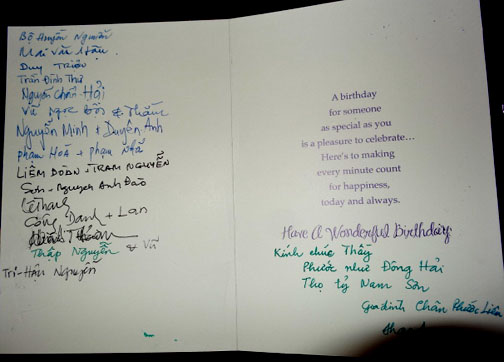 Bộ Huyền Nguyễn
Mai Văn Hậu
Duy Triều
Trần Đình Thư
Nguyễn Chấn Hải
Vũ Ngọc Bôn & Thắm
Nguyễn Minh + Duyên Anh
Phạm Hoà + Phạm Nhã
LIÊM DOAN + TRAM NGUYỄN
Sơn + Nguyen Anh Đào
Lê Thanh
Công Danh + Lan
Thập Nguyễn & Vũ
Tri-Hậu Nguyễn
A birthday
for someone
as special as you
is a pleasure to celebrate...
Here's to making
every minute count
for happiness,
today and always.
Have A Wonderful Birthday
Kính chúc Thầy
Phước như Đông Hải
Thọ tỷ Nam Sơn
Gia đình Chân Phước Liên